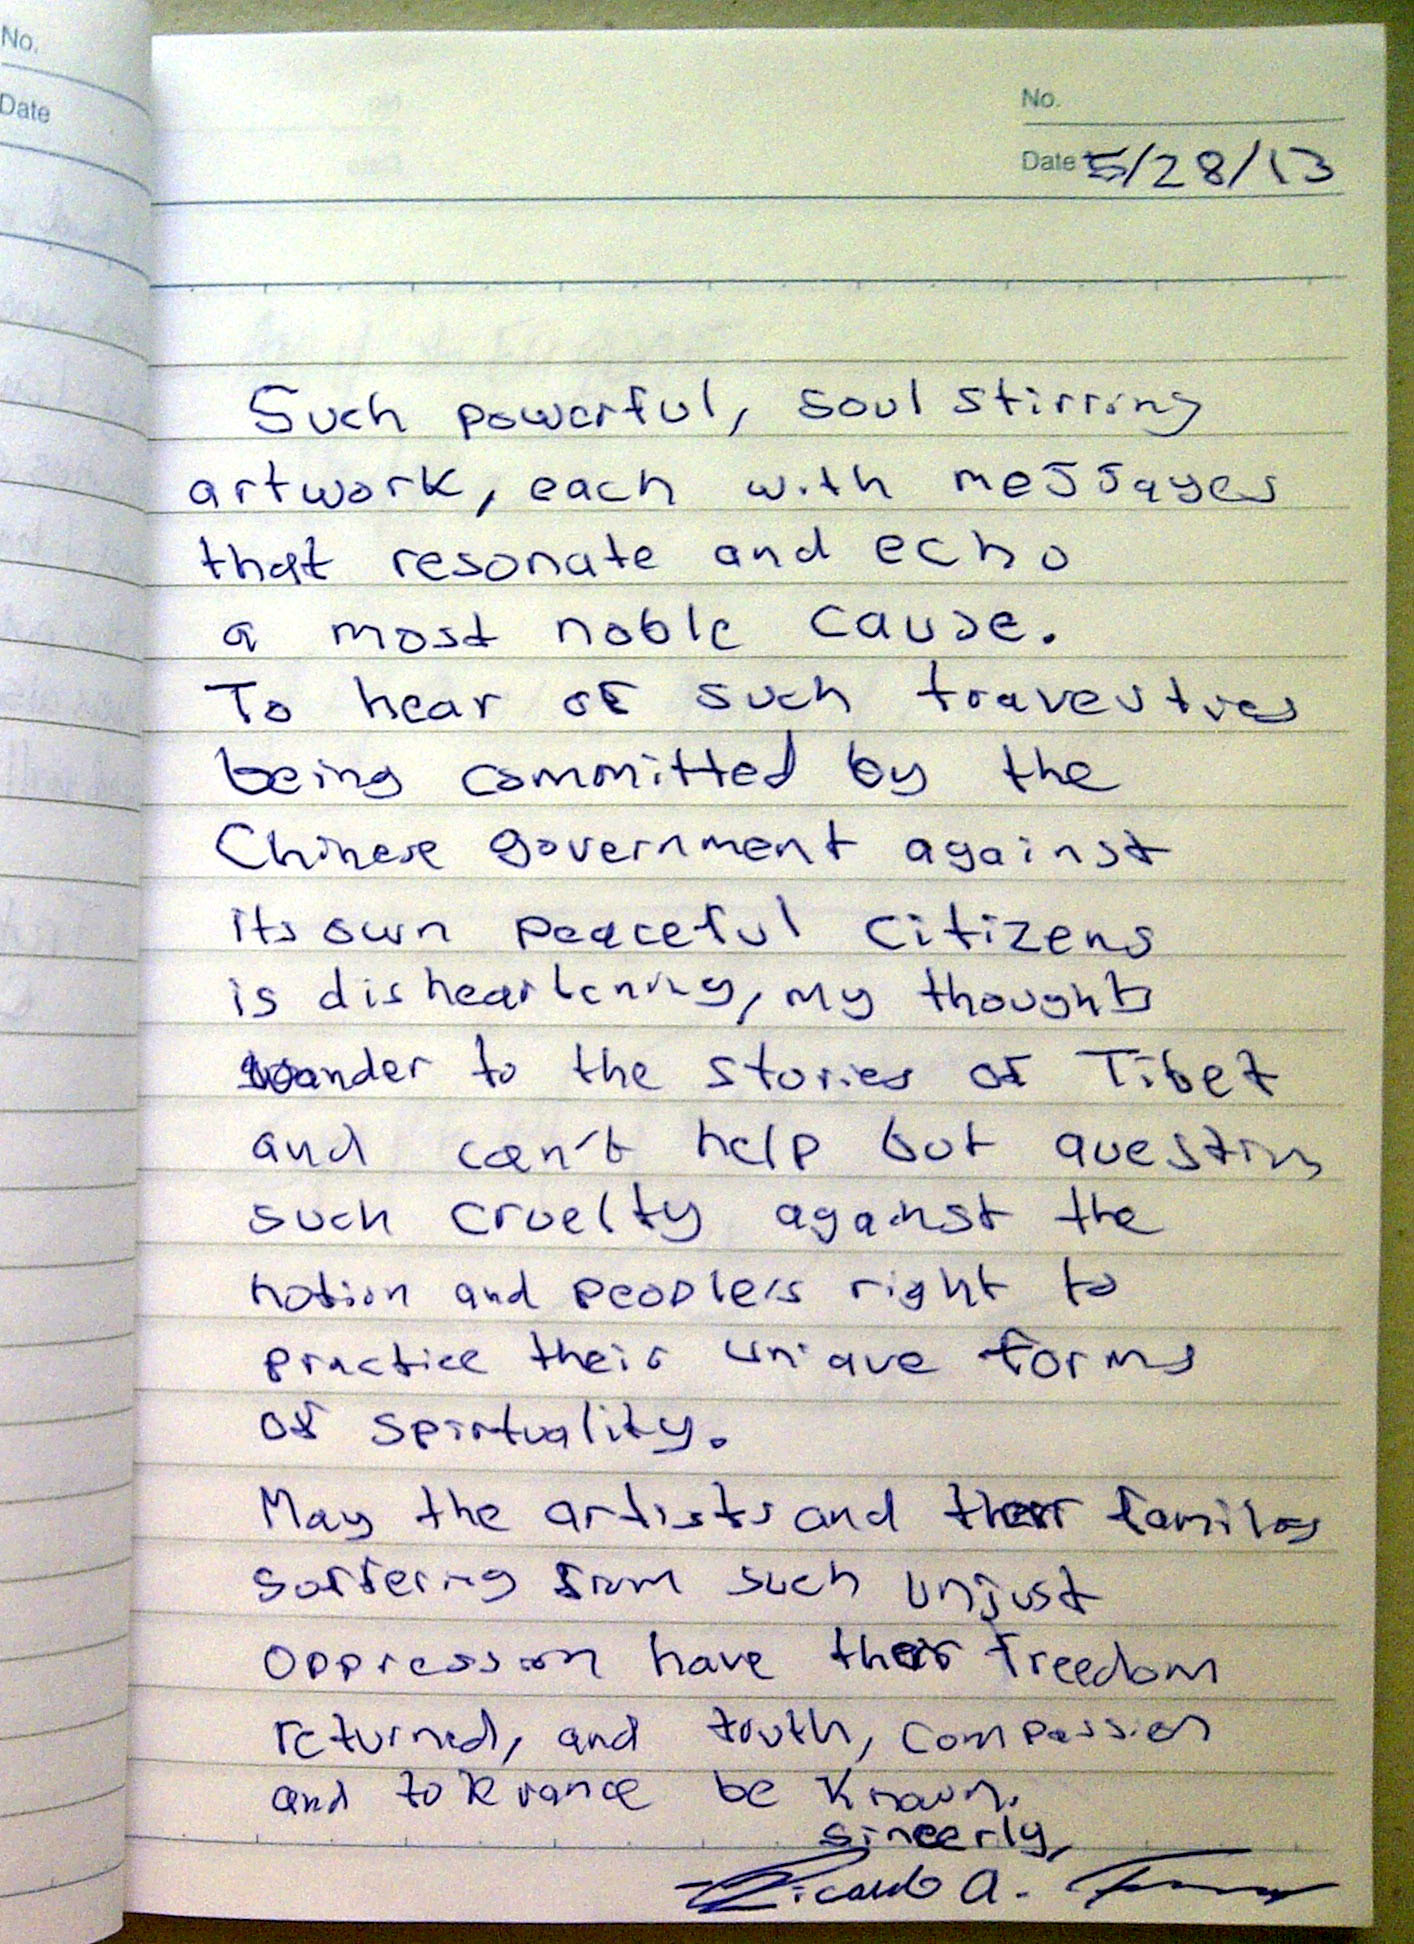 No.
Date
No.
Date 5/28/13
Such powerful, soul stirring
artwork, each with messages
that resonate and echo
a most noble cause.
To hear of such travesties
being committed by the
Chinese government against
its own peaceful citizens
is disheartening, my thoughts
wander to the stories of Tibet
and can't help but question
such cruelty against the
nation and people's right to
practice their unique forms
of spirtuality.
May the artists and their familes
suffering from such unjust
oppression have their freedom
returned, and truth, compassion
and tolerance be known.
sincerly,
Ricardo A.